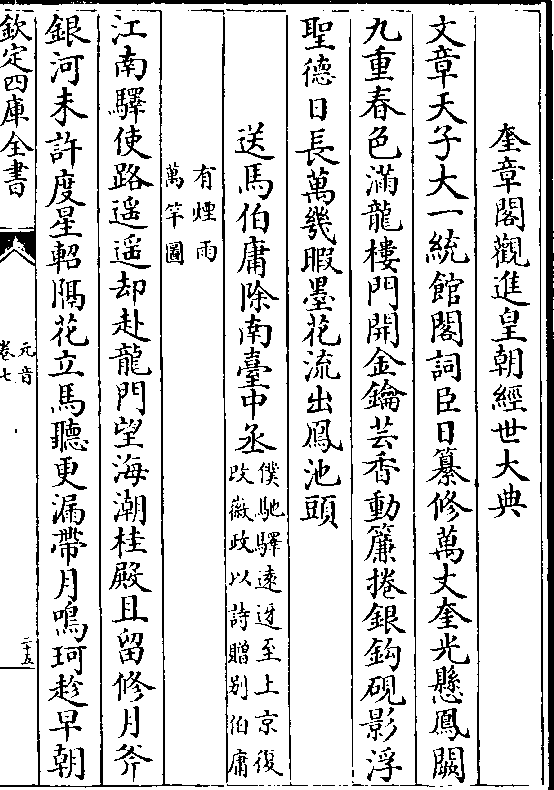 奎章閣觀進皇朝經世大典
文章天子大一統館閣詞臣日纂修萬丈奎光懸鳳闕
九重春色滿龍樓門開金鑰芸香動簾捲銀鈎硯影浮
聖德日長萬幾暇墨花流出鳳池頭
送馬伯庸除南臺中丞
僕馳驛遠迓至上京復
改徽政以詩贈別伯庸
有煙雨
萬竿圖
江南驛使路遥遥却赴龍門望海潮桂殿且留修月斧
銀河未許度星軺隔花立馬聽更漏帶月鳴珂趁早朝
欽定四庫全書
元音
卷七
二十五